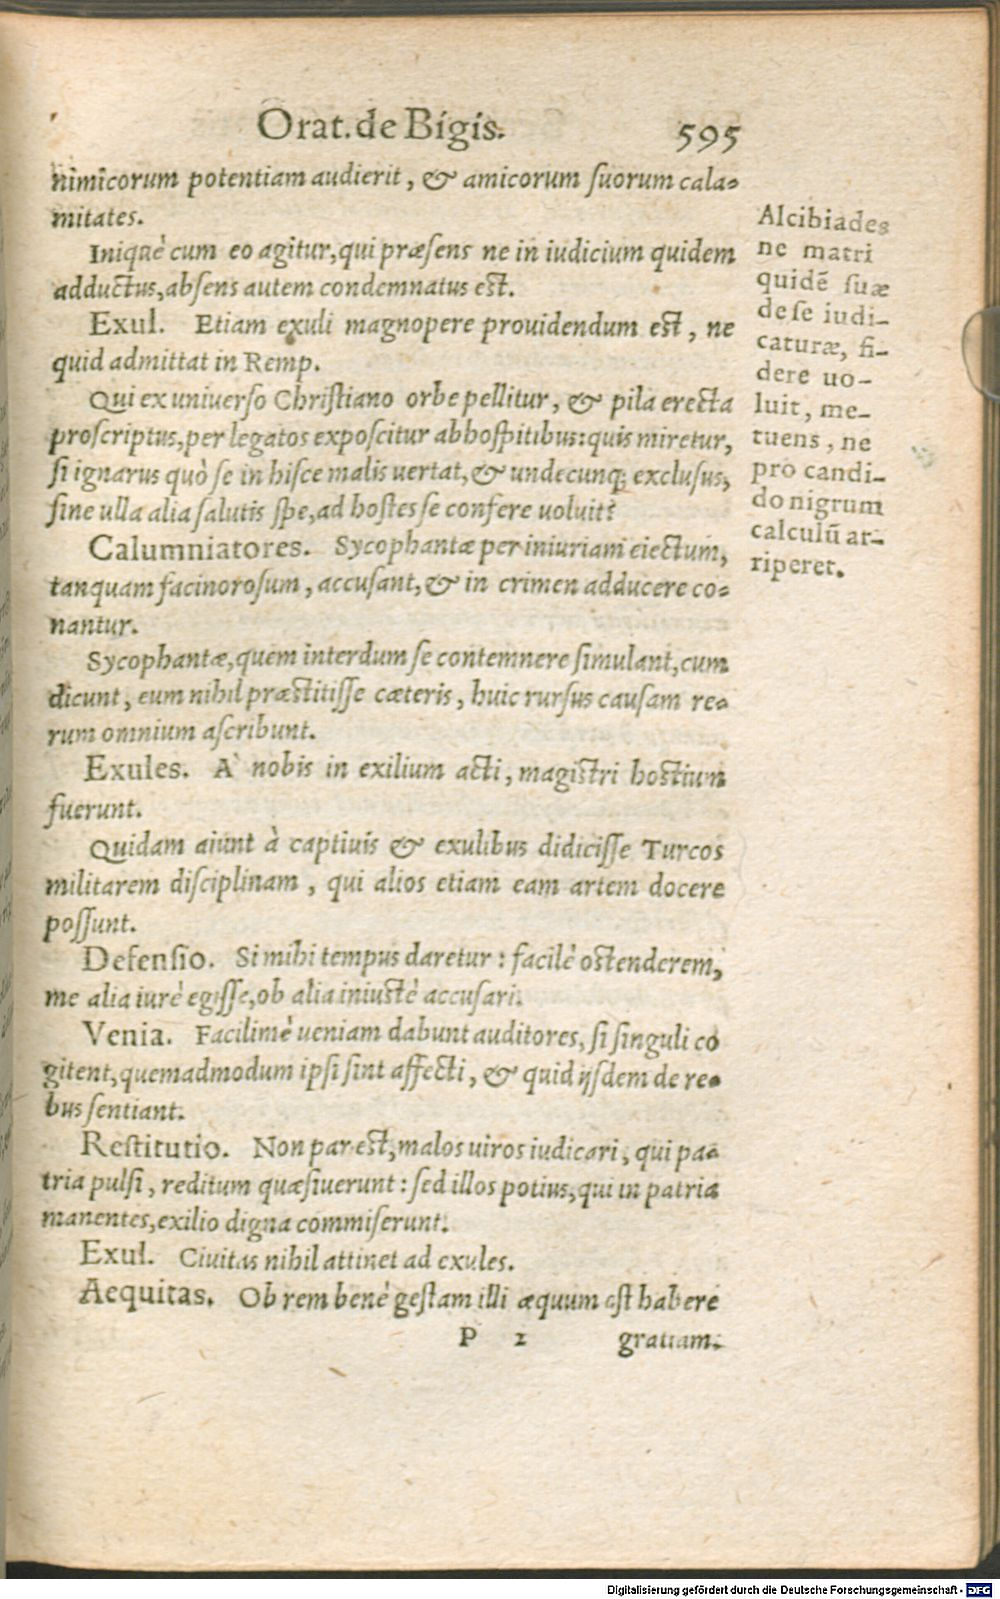 Orat. de Bigis. 595
nimicorum potentiam audierit, & amicorum suorum cala-
mitates.
Iniquè cum eo agitur, qui præsens ne in iudicium quidem
adductus, absens autem condemnatus est.
Exul. Etiam exuli magnopere prouidendum est, ne
quid admittat in Remp.
Qui ex universo Christiano orbe pellitur, & pila erecta
proscriptus, per legatos exposcitur ab hospitibus: quis miretur,
si ignarus quò se in hisce malis uertat, & undecunq; exclusus,
sine ulla alia salutis spe, ad hostes se confere uoluit?
Calumniatores. Sycophantæ per iniuriam eiectum,
tanquam facinorosum, accusant, & in crimen adducere co-
nantur.
Sycophantæ, quem interdum se contemnere simulant, cum
dicunt, eum nihil præstitisse cæteris, huic rursus causam re-
rum omnium ascribunt.
Exules. A' nobis in exilium acti, magistri hostium
fuerunt.
Quidam aiunt à captiuis & exulibus didicisse Turcos
militarem disciplinam, qui alios etiam eam artem docere
possunt.
Defensio. Si mihi tempus daretur: facilè ostenderem,
me alia iurè egisse, ob alia iniustè accusari.
Venia. Facilimè ueniam dabunt auditores, si singuli co
gitent, quemadmodum ipsi sint affecti, & quid ijsdem de re-
bus sentiant.
Restitutio. Non par est, malos uiros iudicari, qui pa-
tria pulsi, reditum quæsiuerunt: sed illos potius, qui in patria
manentes, exilio digna commiserunt.
Exul. Ciuitas nihil attinet ad exules.
Aequitas. Ob rem benè gestam illi æquum est habere
P 2 gratiam.
Alcibiades
ne matri
quidē suæ
de se iudi-
caturæ, fi-
dere uo-
luit, me-
tuens, ne
pro candi-
do nigrum
calculū ar-
riperet.
Digitalisierung gefördert durch die Deutsche Forschungsgemeinschaft - DFG